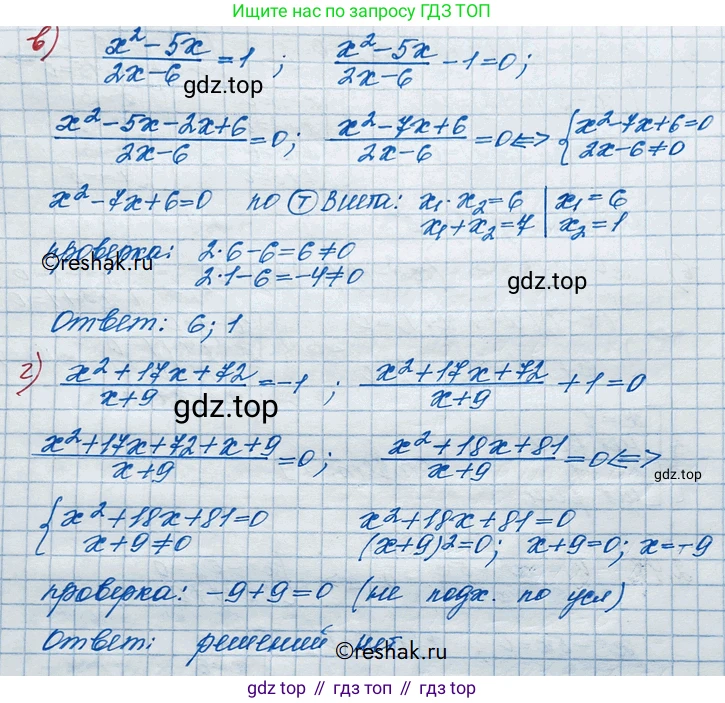 Ищите нас по запросу ГДЗ ТОП
в) (x²-5x)/(2x-6) = 1 ; (x²-5x)/(2x-6) - 1 = 0;
gdz.top
(x²-5x-2x+6)/(2x-6) = 0; (x²-7x+6)/(2x-6) = 0 <=> { x²-7x+6=0
2x-6≠0
x²-7x+6=0 по Ⓣ Виета: x₁·x₂=6 | x₁=6
x₁+x₂=7 | x₂=1
проверка: 2·6-6=6≠0
2·1-6=-4≠0
©reshak.ru
gdz.top
Ответ: 6; 1
г) (x²+17x+72)/(x+9) = -1 ; (x²+17x+72)/(x+9) + 1 = 0
gdz.top
(x²+17x+72+x+9)/(x+9) = 0; (x²+18x+81)/(x+9) = 0 <=>
gdz.top
{ x²+18x+81=0 x²+18x+81=0
x+9≠0 (x+9)2=0; x+9=0; x=-9
проверка: -9+9=0 (не подх. по усл)
Ответ: решений нет
©reshak.ru
gdz.top // гдз топ // gdz top